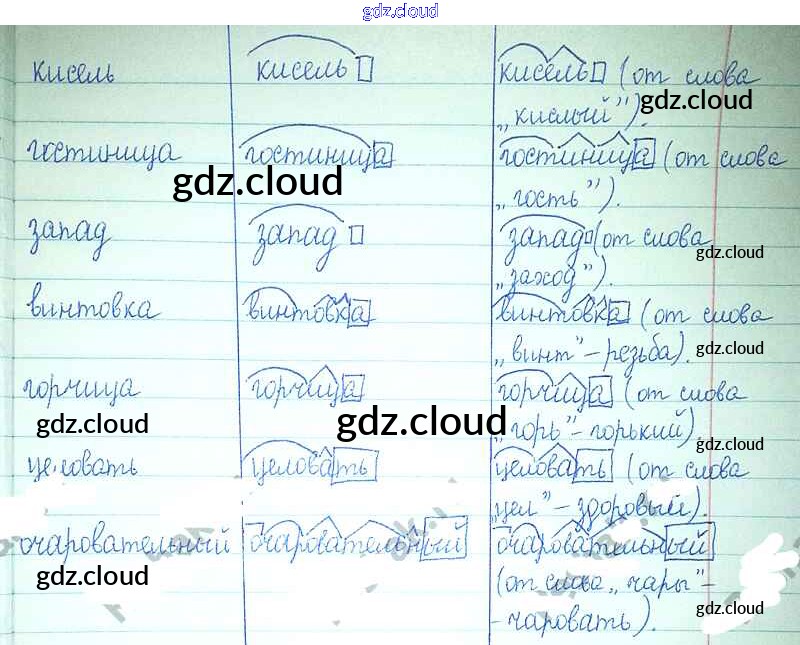 gdz.cloud
кисель кисель кисель (от слова
„кислый").
gdz.cloud
гостиница гостиница гостиница (от слова
gdz.cloud
„гость").
запад запад запад (от слова
gdz.cloud
„заход").
винтовка винтовка винтовка (от слова
„винт" - резьба).
gdz.cloud
горчица горчица горчица (от слова
gdz.cloud gdz.cloud
„горь" - горький).
gdz.cloud
целовать целовать целовать (от слова
gdz.cloud
„цел" - здоровый).
очаровательный очаровательный очаровательный
gdz.cloud
(от слова „чары" -
gdz.cloud
- чаровать).